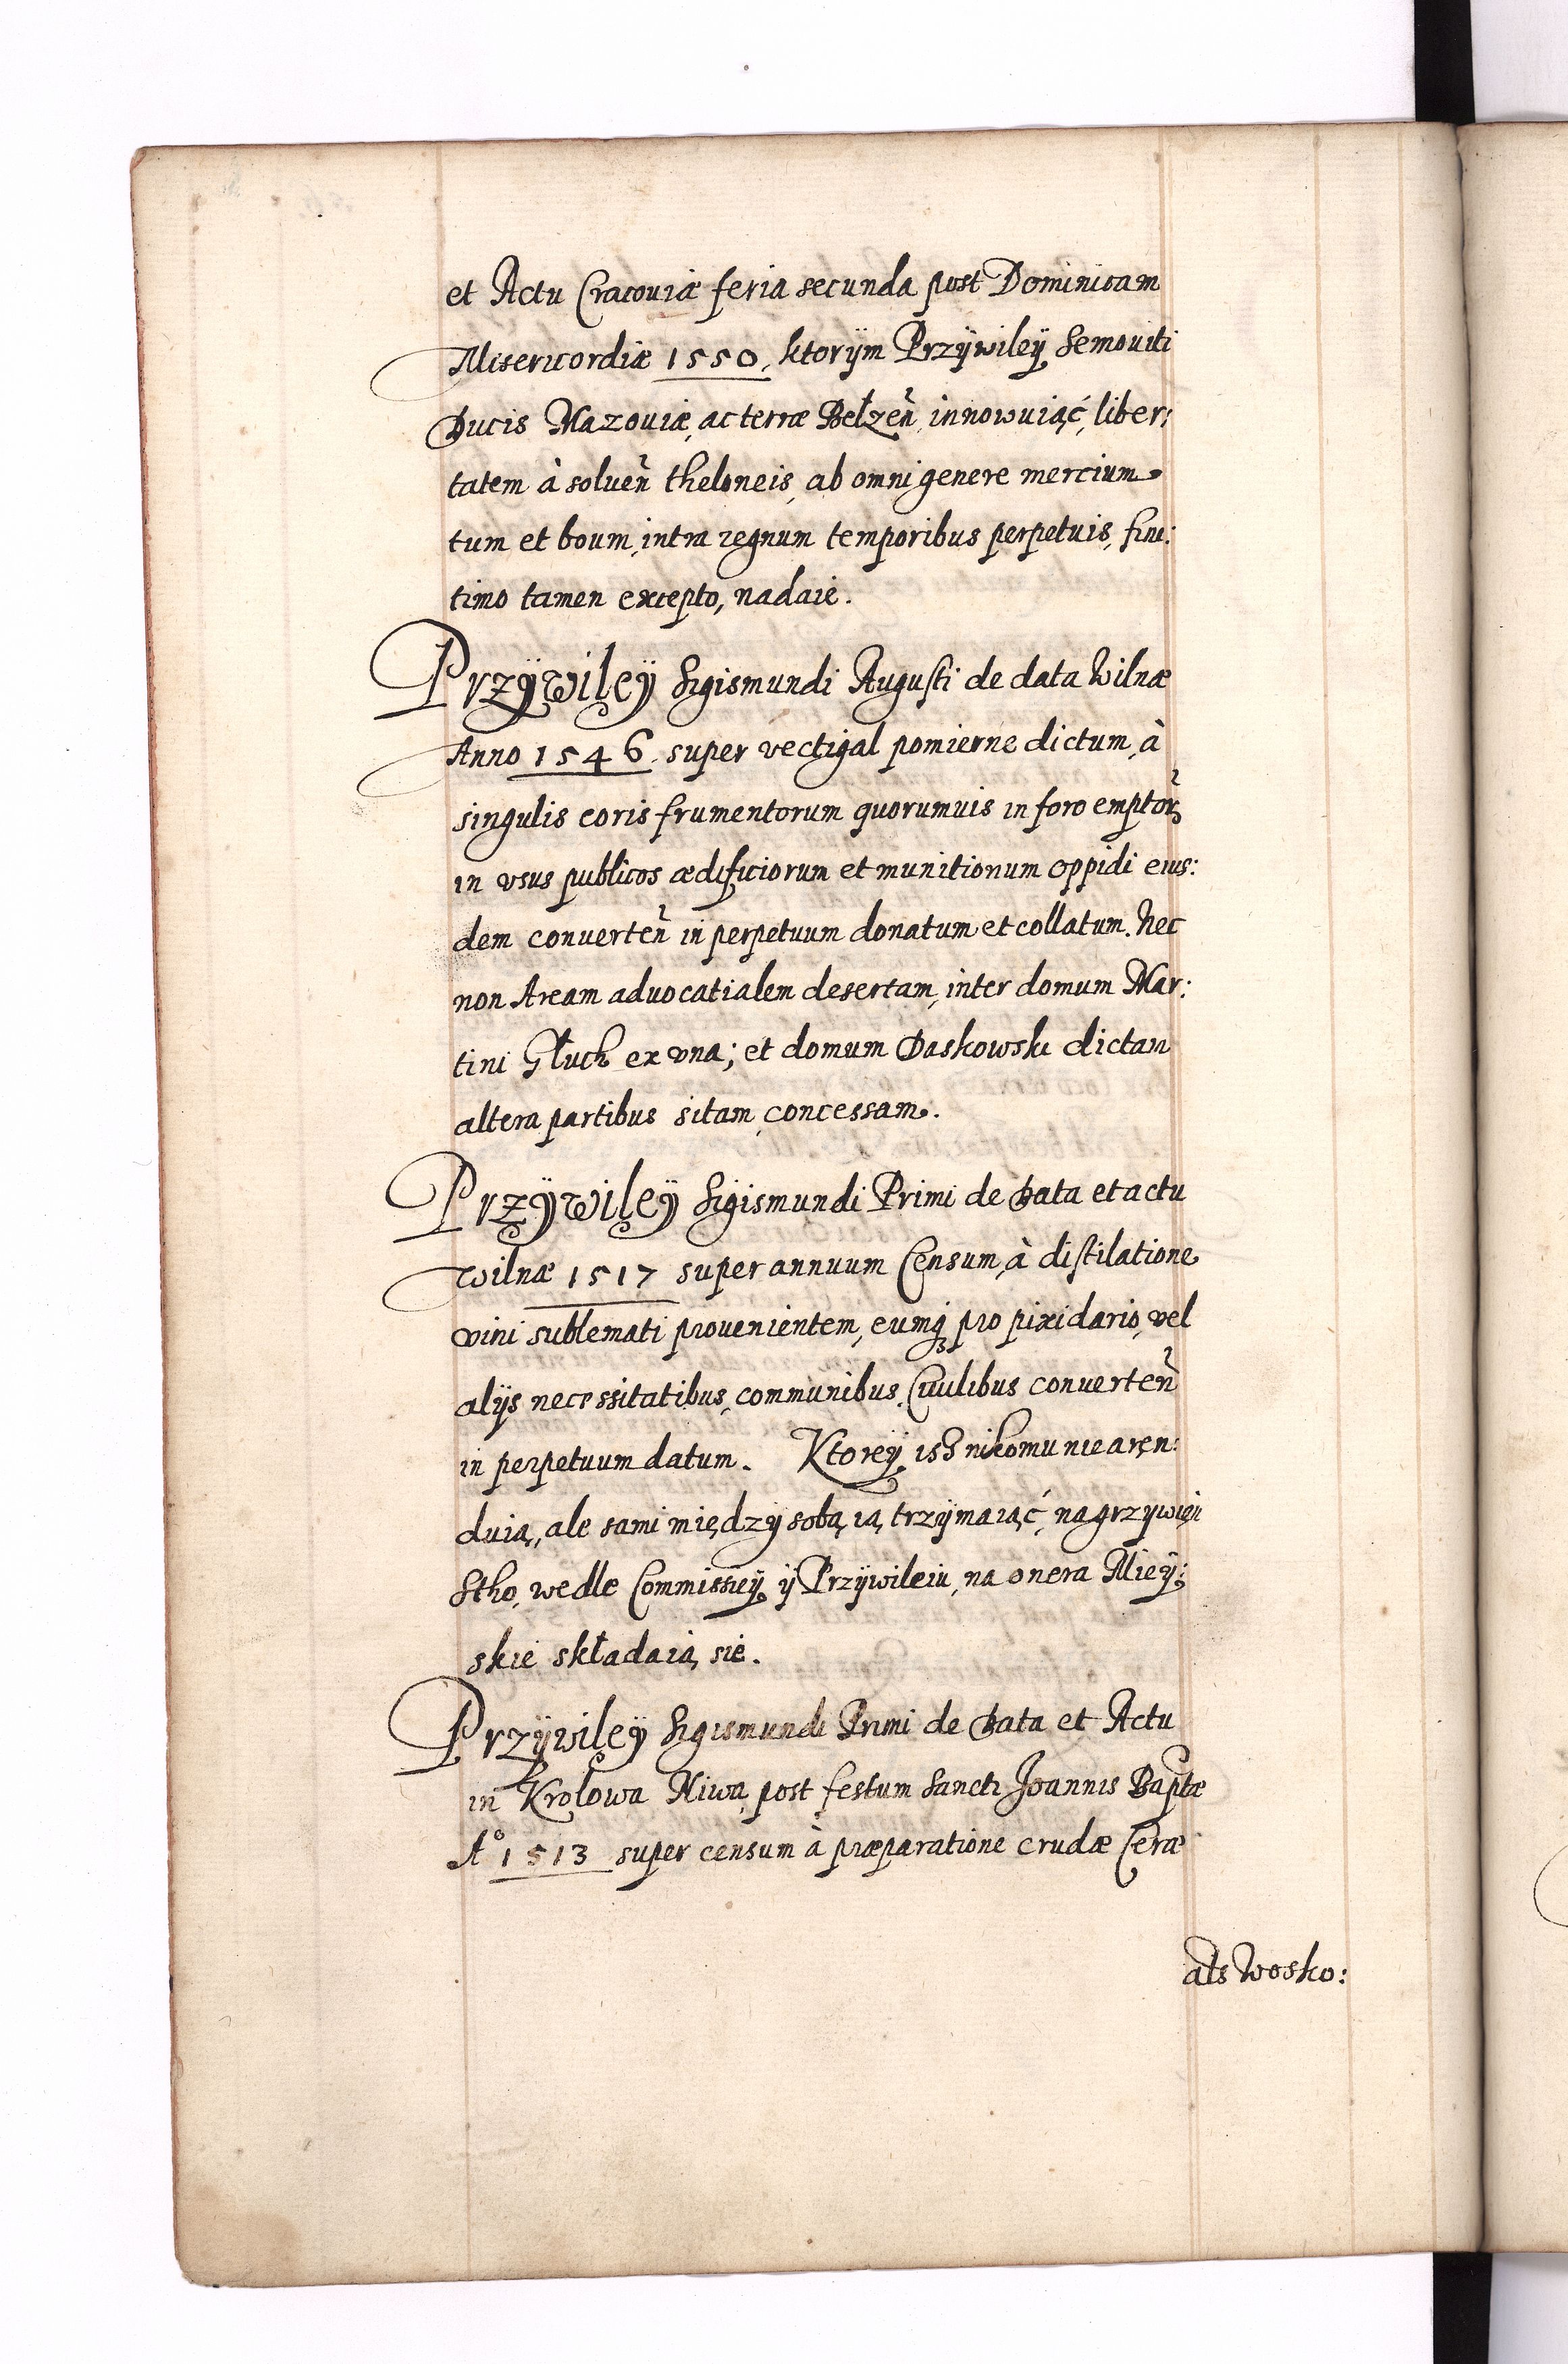 et Actu Cracouiæ feria secunda post Dominicam
Misericordiæ 1550, ktorÿm Przÿwileÿ Semouiti
Ducis Mazouiæ, ac terræ Bełzeñ, innowuiąć, liber:
tatem à solueñ theloneis, ab omni genere mercium
tum et boum, intra regnum temporibus perpetuis, fini:
timo tamen excepto, nadaie.
Przÿwileÿ Sigismundi Augusti de data Wilnæ
Anno 1546. super vectigal pomierne dictum, à
singulis coris frumentorum quorumuis in foro emptoꝝ
in vsus publicos ædificiorum et munitionum oppidi eius:
dem conuerteñ in perpetuum donatum et collatum. Nec
non Aream aduocatialem desertam, inter domum Mar:
tini Głuch ex vna; et domum Daskowski dictam
altera partibus sitam, concessam.
Przÿwileÿ Sigismundi Primi de Data et actu
Wilnæ 1517 super annuum Censum, à distilatione
vini sublemati prouenientem, eumq́ʒ pro pixidario, vel
alÿs necessitatibus, communibus, Ciuilibus conuerteñ
in perpetuum datum. Ktoreÿ isz nikomu nie aren:
duią, ale sami międzÿ sobą ią trzÿmaiąć, na grzÿwień
Stho, wedle Commissieÿ ÿ Przÿwileiu, na onera Mieÿ:
skie składaią sie.
Przÿwileÿ Sigismundi Primi de Data et Actu
in Krolowa Niwa, post festum Sancti Joannis Baptæ
Aº 1513 super censum à præparatione crudæ Ceræ
als Wosko: